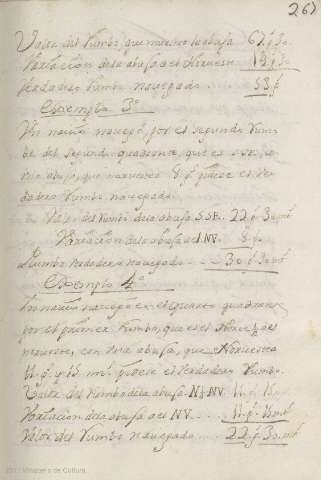 267
Valor del Rumbo, que muestra la abuja 67 g 30
Variacion de la abuja del Norueste 9 g 30
Verdadero Rumbo navegado 58 g
Exemplo 3º
Un navio navegó, por el segundo Rum
be del segundo quadrante, que es SSE,
abuja, que noruestea 8 g pidese el Ver
dadero Rumbo navegado
Valor del Rumbo de la abuja SSE. 22 g 30 mt
Variacion de la abuja al NV. 8 g
Rumbo Verdadero navegado 30 g 30 mt
Exemplo 4º
Un navio navegó en el quarto quadrante
por el primer Rumbo, que es el
norueste, con una abuja, que Noruestea
11 g y 15 mt pidese el Verdadero Rumbo.
Valor del Rumbo de la abuja N¼NV. 11 g 15 mt
Variacion de la abuja al NV 11 g 15 mt
Valor del Rumbo navegado 22 g 30 mt
Ministerio de Cultura